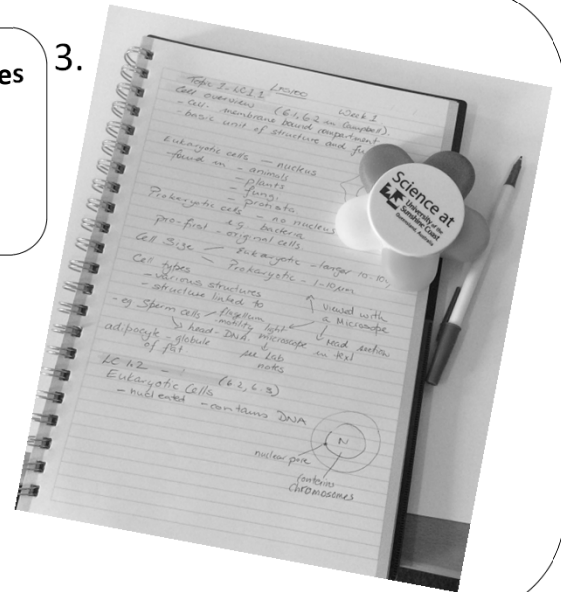 es
3.
Topic 3 - LC1.1 Week 1
Cell overview (6.1, 6.2 in Campbell)
- Cell: membrane bound compartment
- basic unit of structure and fu
Eukaryotic cells — nucleus
found in - animals
- plants
- fungi
- protista
Prokaryotic cells - no nucleus
eg. bacteria
pro-first - original cells.
Cell Size Eukaryotic - larger 10-100
Prokaryotic - 1-10µm
Cell types
- various structures
- structure linked to
viewed with
a Microscope
- eg Sperm cells flagellum
- motility light
head - DNA microscope
Read section
in text
adipocyte - globule
of fat
see Lab
notes
LC 1.2 - (6.2, 6.3)
Eukaryotic Cells
- contains DNA
N
nuclear pore
contains
chromosomes
Science at
University of the
Sunshine Coast
Queensland, Australia